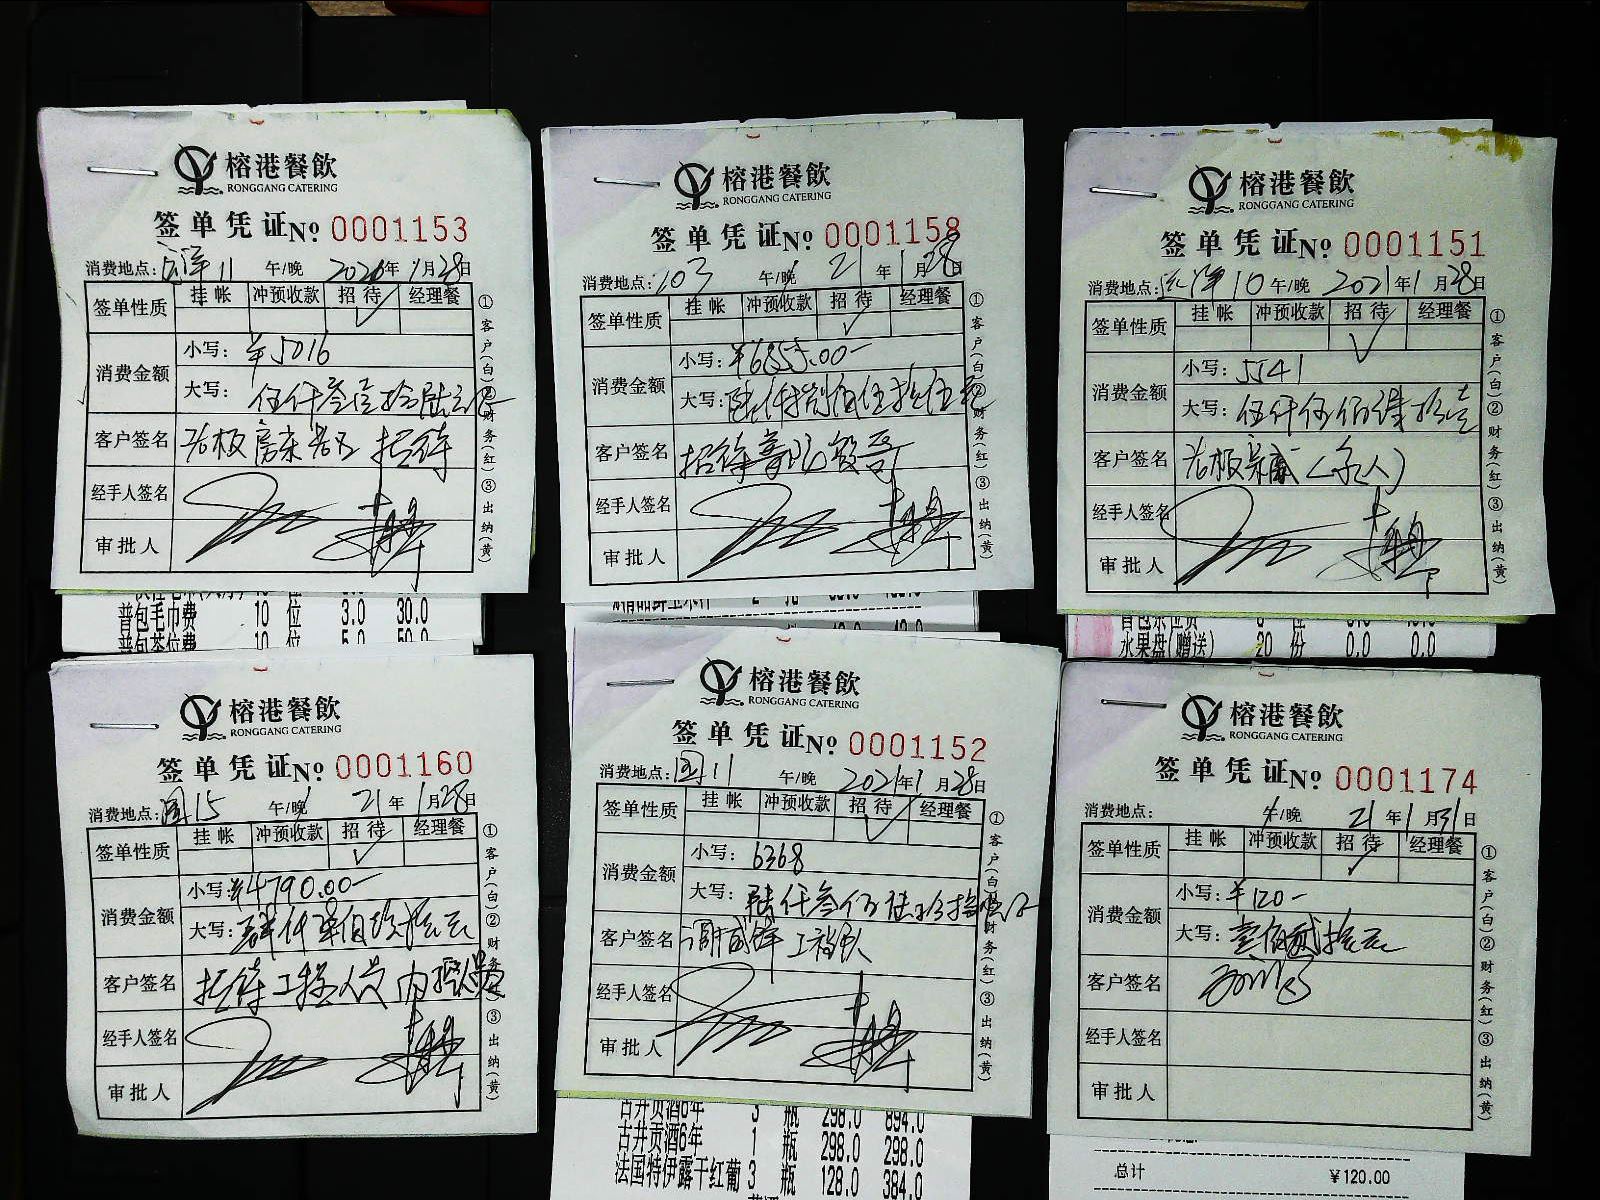 榕港餐飲
RONGGANG CATERING
签单凭证№ 0001153
消费地点: 11 午/晚 年1月28日
签单性质 挂帐 冲预收款 招待 经理餐
√
消费金额 小写: ¥5016
大写:
客户签名 招待
经手人签名
审批人
①客户(白)②财务(红)③出纳(黄)
普包毛巾费 10 位 3.0 30.0
普包茶位费 10 位 5.0 50.0
榕港餐飲
RONGGANG CATERING
签单凭证№ 0001158
消费地点: 103 午/晚 21年1月28日
签单性质 挂帐 冲预收款 招待 经理餐
√
消费金额 小写: ¥6855.00-
大写: 陆仟捌佰伍拾伍元
客户签名 招待
经手人签名
审批人
①客户(白)②财务(红)③出纳(黄)
榕港餐飲
RONGGANG CATERING
签单凭证№ 0001151
消费地点: 10 午/晚 2021年1月28日
签单性质 挂帐 冲预收款 招待 经理餐
√
消费金额 小写: 5541
大写: 伍仟伍佰肆拾壹
客户签名
经手人签名
审批人
①客户(白)②财务(红)③出纳(黄)
水果盘(赠送) 20 份 0.0 0.0
榕港餐飲
RONGGANG CATERING
签单凭证№ 0001160
消费地点: 15 午/晚 21年1月28日
签单性质 挂帐 冲预收款 招待 经理餐
√
消费金额 小写: ¥4790.00-
大写: 肆仟柒佰玖拾元
客户签名 招待工程人员
经手人签名
审批人
①客户(白)②财务(红)③出纳(黄)
榕港餐飲
RONGGANG CATERING
签单凭证№ 0001152
消费地点: 11 午/晚 2021年1月28日
签单性质 挂帐 冲预收款 招待 经理餐
√
消费金额 小写: 6368
大写: 陆仟叁佰陆拾捌元
客户签名 工程队
经手人签名
审批人
①客户(白)②财务(红)③出纳(黄)
古井贡酒6年 3 瓶 298.0 894.0
古井贡酒6年 1 瓶 298.0 298.0
法国特伊露干红葡 3 瓶 128.0 384.0
榕港餐飲
RONGGANG CATERING
签单凭证№ 0001174
消费地点: 午/晚 21年1月31日
签单性质 挂帐 冲预收款 招待 经理餐
√
消费金额 小写: ¥120-
大写: 壹佰贰拾元
客户签名
经手人签名
审批人
①客户(白)②财务(红)③出纳(黄)
总计 ¥120.00